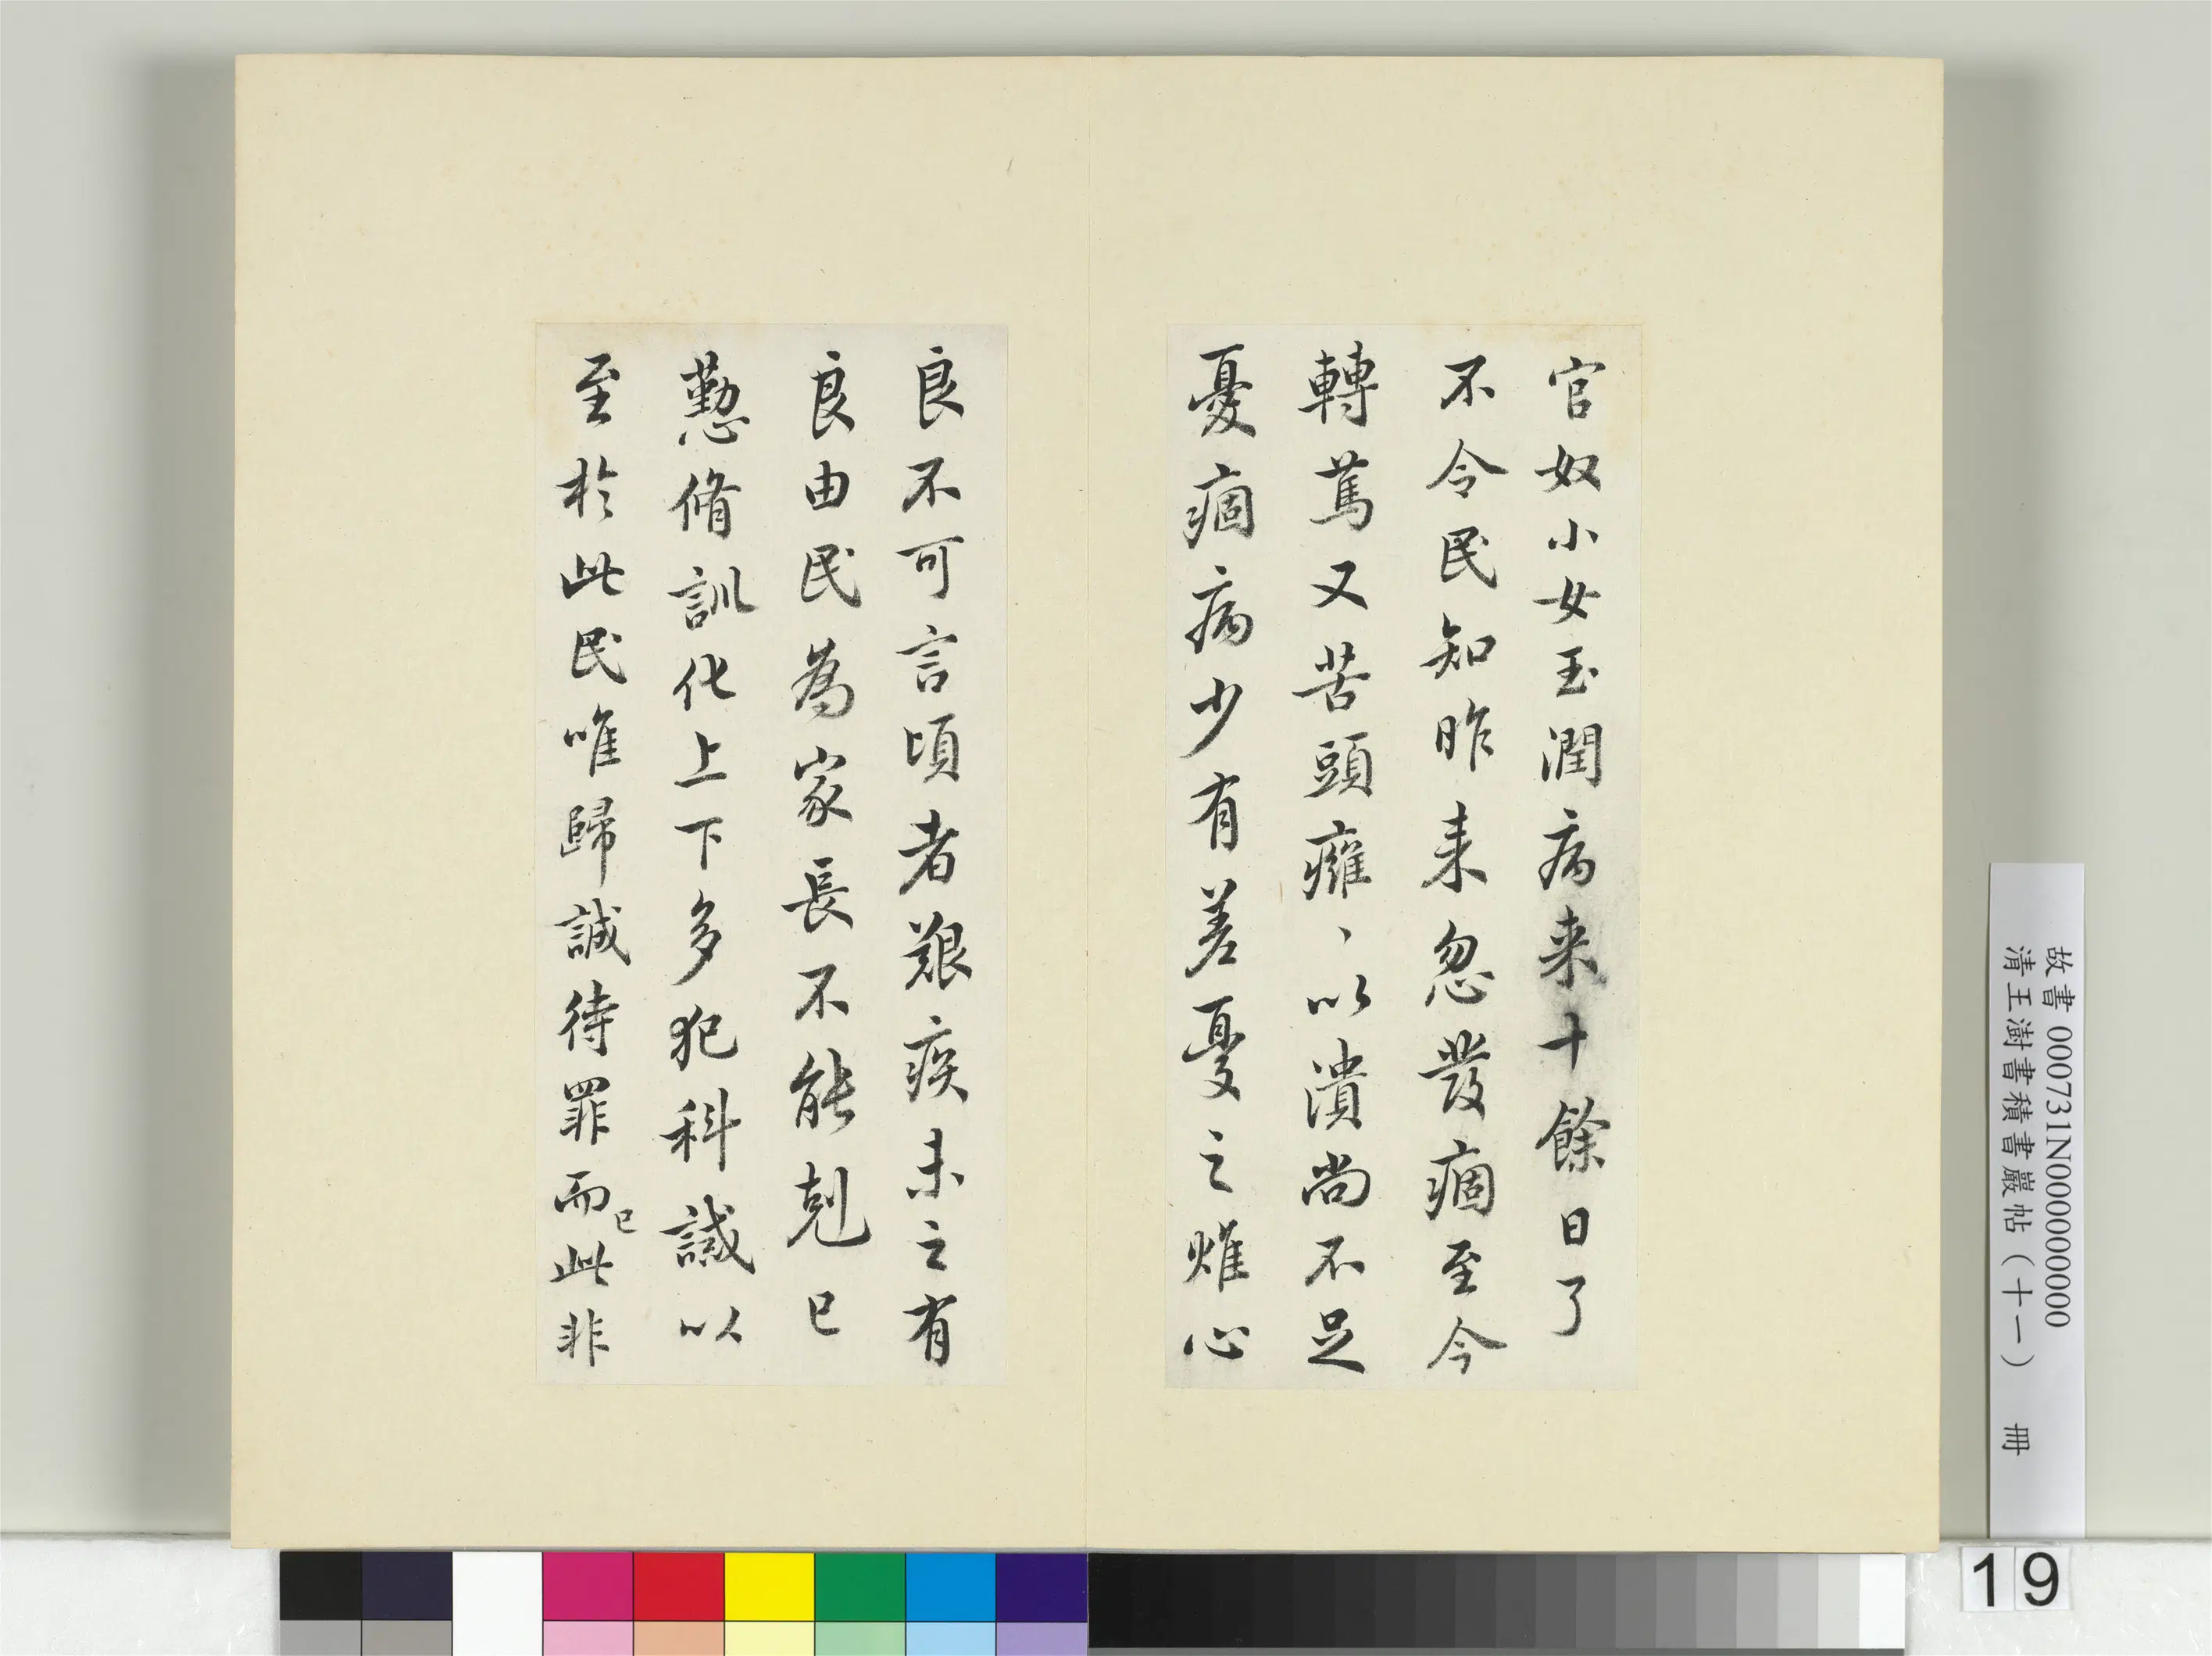 官奴小女玉潤病来十餘日了
不令民知昨来忽發痼至今
轉篤又苦頭癰丶以潰尚不足
憂痼病少有差憂之燋心
良不可言頃者艱疾未之有
良由民為家長不能剋已
懃脩訓化上下多犯科誡以
至於此民唯歸誠待罪而已此非
故書 000731N000000000
清王澍書積書巖帖（十一） 冊
19